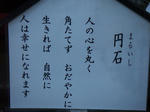 まるいし
円石
人の心を丸く
角たてず おだやかに
生きれば 自然に
人は幸せになれます